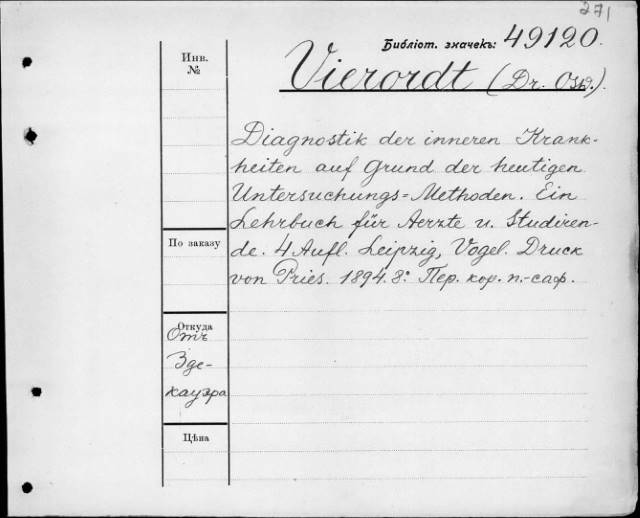 271
Библіот. значекъ: 49120.
Vierordt (Dr. Osw.).
Инв.
№
Diagnostik der inneren Krank-
heiten auf Grund der heutigen
Untersuchungs=Methoden. Ein
Lehrbuch für Aerzte u. Studiren-
de. 4 Aufl. Leipzig, Vogel. Druck
von Pries. 1894. 8º. Пер. кор. п.-саф.
По заказу
Откуда
Отъ
Зде-
кауэра
Цѣна